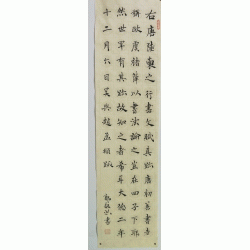 右唐陸柬之行書文賦真跡唐初善書者
稱歐虞褚薛以書法論之豈在四子下耶
然世罕有其跡故知之者希耳大德二年
十二月六日吳興趙孟頫跋
書